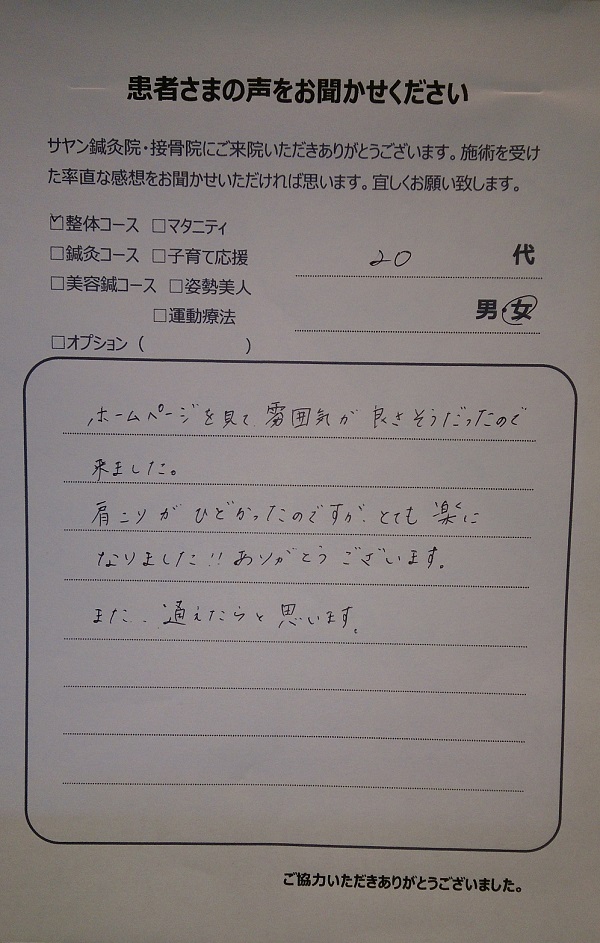 患者さまの声をお聞かせください
サヤン鍼灸院・接骨院にご来院いただきありがとうございます。施術を受け
た率直な感想をお聞かせいただければ思います。宜しくお願い致します。
☑整体コース □マタニティ
□鍼灸コース □子育て応援
□美容鍼コース □姿勢美人
□運動療法
□オプション（　　　　　　）
20 代
男・女
ホームページを見て雰囲気が良さそうだったので
来ました。
肩コリがひどかったのですが、とても楽に
なりました!! ありがとうございます。
また、通えたらと思います。
ご協力いただきありがとうございました。